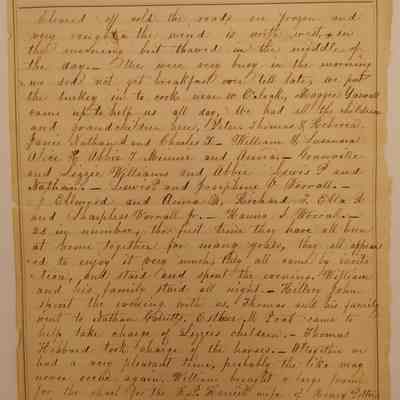 Cleared off cold the roads are frozen and
very rough & the wind is north west & in
the morning but thawed in the middle of
the day. — We were very busy in the morning
we did not get breakfast over till late, we put
the turkey in to cook near o Clock, Maggie
came up to help us all day. We had all the children
and grandchildren here, Peter Thomas & Rebecca
Janie Nathan and Charles T — William & Susanna
Alice H Abbie T Minnie and Anna — Granville
and Lizzie Williams and Abbie Lewis P and
Nathan. — Lewis P and Josephine P Worrall. —
J Ellwood and Anna M, Richard T. Ella D
and Sharpless Worrall Jr. — Hanna T Worrall. —
in number, the first time they have all been
at home together for many years, they all appear
ed to enjoy it very much, they all came by invita
tion, and staid and spent the evening, William
and his family staid all night. — Hillery John
spent the evening with us, Thomas and his family
went to Nathan, Esther M Cook came to
help take charge of Lizzies children. — Thomas
Hibbard took charge of the horses. — Altogether we
had a very pleasant time, probably the like may
never occur again. William brought a large
for the for the wife of Henry